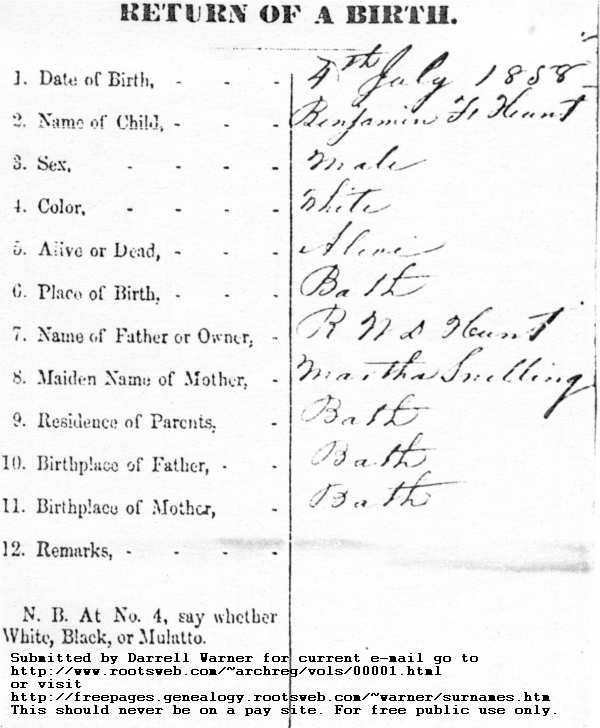 RETURN OF A BIRTH.
1. Date of Birth, - - - 4th July 1858
2. Name of Child, - - - Benjamin F. Hunt
3. Sex, - - - - Male
4. Color, - - - - White
5. Alive or Dead, - - - Alive
6. Place of Birth, - - - Bath
7. Name of Father or Owner, - R N D Hunt
8. Maiden Name of Mother, - Martha Snelling
9. Residence of Parents, - Bath
10. Birthplace of Father, - - Bath
11. Birthplace of Mother, - Bath
12. Remarks, - - - -
N. B. At No. 4, say whether
White, Black, or Mulatto.
Submitted by Darrell Warner for current e-mail go to
http://www.rootsweb.com/~archreg/vols/00001.html
or visit
http://freepages.genealogy.rootsweb.com/~warner/surnames.htm
This should never be on a pay site. For free public use only.